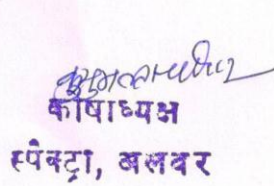 कोषाध्यक्ष
स्पेक्ट्रा, अलवर